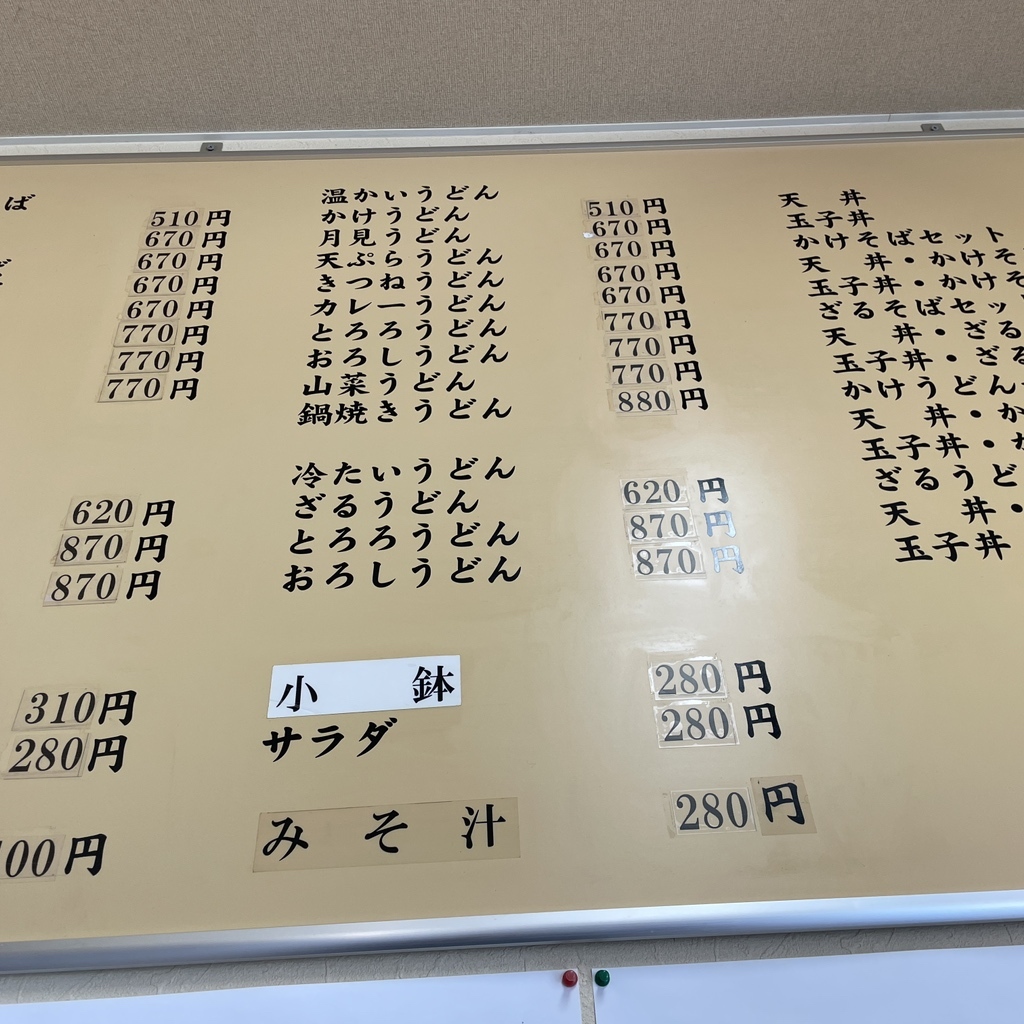 ば
510円
670円
670円
670円
670円
770円
770円
770円
620円
870円
870円
310円
280円
00円
温かいうどん
かけうどん 510円
月見うどん 670円
天ぷらうどん 670円
きつねうどん 670円
カレーうどん 670円
とろろうどん 770円
おろしうどん 770円
山菜うどん 770円
鍋焼きうどん 880円
冷たいうどん
ざるうどん 620円
とろろうどん 870円
おろしうどん 870円
小 鉢 280円
サラダ 280円
み そ 汁 280円
天 丼
玉子丼
かけそばセット
天 丼・かけそ
玉子丼・かけそ
ざるそばセッ
天 丼・ざる
玉子丼・ざる
かけうどん
天 丼・か
玉子丼・か
ざるうど
天 丼・
玉子丼